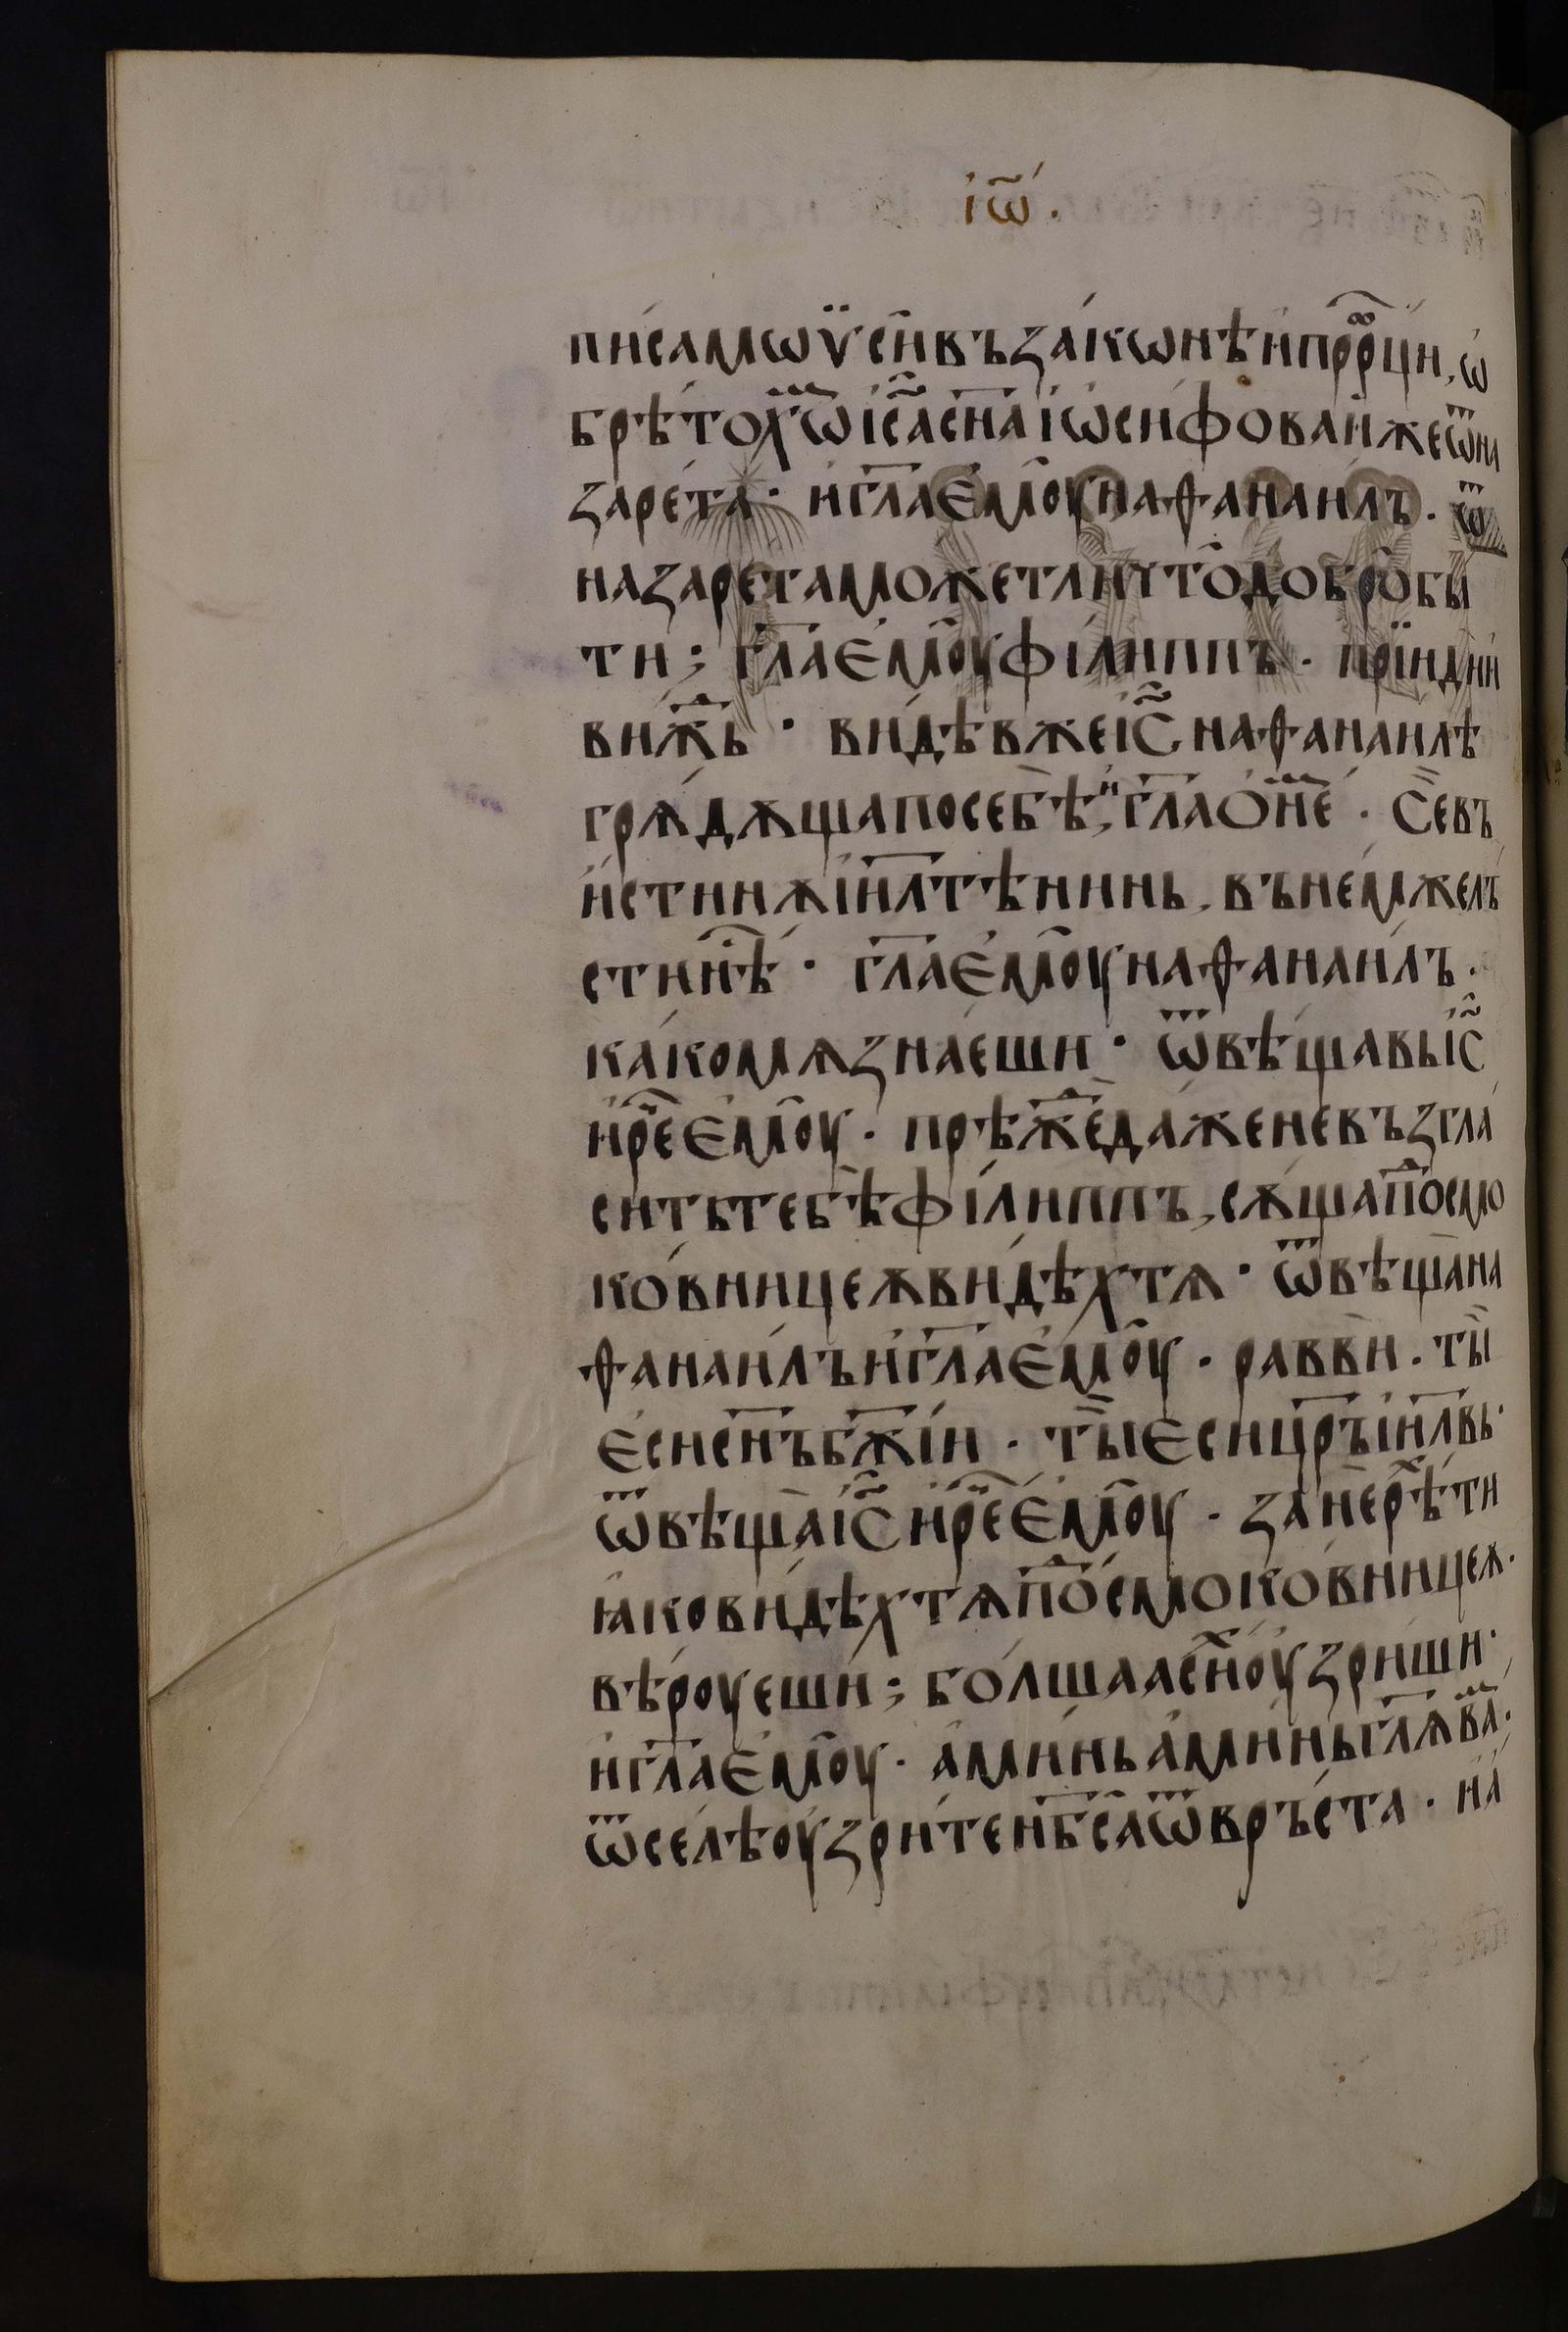 іѡ҃.
пи́саⷧ мѡѷсе́и въ зако́нѣ и҆ прⷪ҇рци, ѡ҆
брѣ́тохѡⷨ і҆с҃а сн҃а і҆ѡ́сифова и҆́же ѿ на
заре́та · и҆ гл҃а е҆моу̑ наѳанаи́лъ · ѿ
назаре́та мо́жет ли что̀ добро̀ бы́
ти ; гл҃а е҆моу̑ фі́липпъ · прїиди̑ и҆
ви́жⷣь · ви́дѣв же і҆с҃ наѳанаи́лѣ
грѧ́дѫща по себѣ̀, и҆ гл҃а ѻ҆ неⷨ · Се̏ въ
и҆́стинѫ і҆и҃лтѣнинь, въ не́мже лъ
стиⷩ҇ нѣ́ · гл҃а е҆моу̑ наѳанаи́лъ ·
ка́ко мѧ зна́еши · ѿвѣ́щавь і҆с҃
и҆ реⷱ҇ е҆моу̑ · прѣ́жⷣе да́же не въ́згла
ситъ тебѣ̀ фі́липпъ, сѫ́ща поⷣ смо
ко́вницеѫ ви́дѣх тѧ · ѿвѣща̀ на
ѳанаи́лъ и҆ гл҃а е҆моу̑ · равви̑ · ты̏
е҆си сн҃ъ бж҃іи · ты̏ е҆си цр҃ъ і҆и҃лвь ·
ѿвѣща̀ і҆с҃ и҆ реⷱ҇ е҆моу̑ · занѐ рѣⷯ ти
ꙗ҆́ко ви́дѣх тѧ поⷣ смоко́вницеѫ ·
вѣ́роуеши ; бо́лшаа сиⷯ оу҆́зриши ·
и҆ гл҃а е҆моу̑ · а҆ми́нь а҆ми́нь гл҃ѧ ваⷨ ·
ѿсе́лѣ оу҆́зрите нб҃са ѿвръ́ста · и҆ а҆́